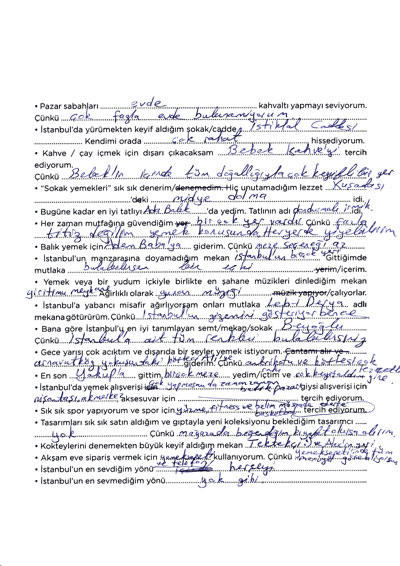 • Pazar sabahları evde kahvaltı yapmayı seviyorum.
Çünkü çok fazla evde bulunamıyorum
• İstanbul'da yürümekten keyif aldığım sokak/cadde İstiklal Caddesi
Kendimi orada çok rahat hissediyorum.
• Kahve / çay içmek için dışarı çıkacaksam Bebek Kahve'yi tercih
ediyorum.
Çünkü Bebek'in içinde tüm doğallığıyla çok keyifli bir yer
• "Sokak yemekleri" sık sık denerim/denemedim. Hiç unutamadığım lezzet Kuşadası
'deki midye dolma idi.
• Bugüne kadar en iyi tatlıyı Ada Balık 'da yedim. Tatlının adı dondurmalı irmik.
• Her zaman mutfağına güvendiğim bir çok yer vardır Çünkü fazla
titiz değilim yemek konusunda. Heryerde yiyebilirim
• Balık yemek için Adem Baba'ya giderim. Çünkü meze seçeneği az
• İstanbul'un manzarasına doyamadığım mekan İstanbul'un birçok yeri Gittiğimde
mutlaka bulabilirsem bir yerim/içerim.
• Yemek veya bir yudum içkiyle birlikte en sahane müzikleri dinlediğim mekan
Ağırlıklı olarak yunan müziği müzik yapıyor/çalıyorlar.
• İstanbul'a yabancı misafir ağırlıyorsam onları mutlaka Leb-i Derya adlı
mekana götürürüm. Çünkü İstanbul'un gizemini gösteriyor bence
• Bana göre İstanbul'u en iyi tanımlayan semt/mekan/sokak Beyoğlu
Çünkü İstanbul'a ait tüm renkleri bulabilirsiniz
• Gece yarısı çok acıktım ve dışarıda bir şeyler yemek istiyorum. Çantamı alır ve
arnavutköy yokuşundaki köfteci Ali'ye giderim. Çünkü ambiyansı ve köftesi çok
• En son Yakup'a gittim, biraz meze yedim/içtim
• İstanbul'da yemek alışverişi için giysi alışverişi için
nişantaşı, akmerkez aksesuvar için tercih ediyorum.
• Sık sık spor yapıyorum ve spor için yüzme, fitness ve tercih ediyorum.
• Tasarımları sık sık satın aldığım ve gıptayla yeni koleksiyonu beklediğim tasarımcı
yok Çünkü mağazada beğendiğim kıyafet olursa alırım.
• Kokteylerini denemekten büyük keyif aldığım mekan
• Akşam eve sipariş vermek için yemeksepeti kullanıyorum. Çünkü
• İstanbul'un en sevdiğim yönü herşeyi
• İstanbul'un en sevmediğim yönü yok gibi